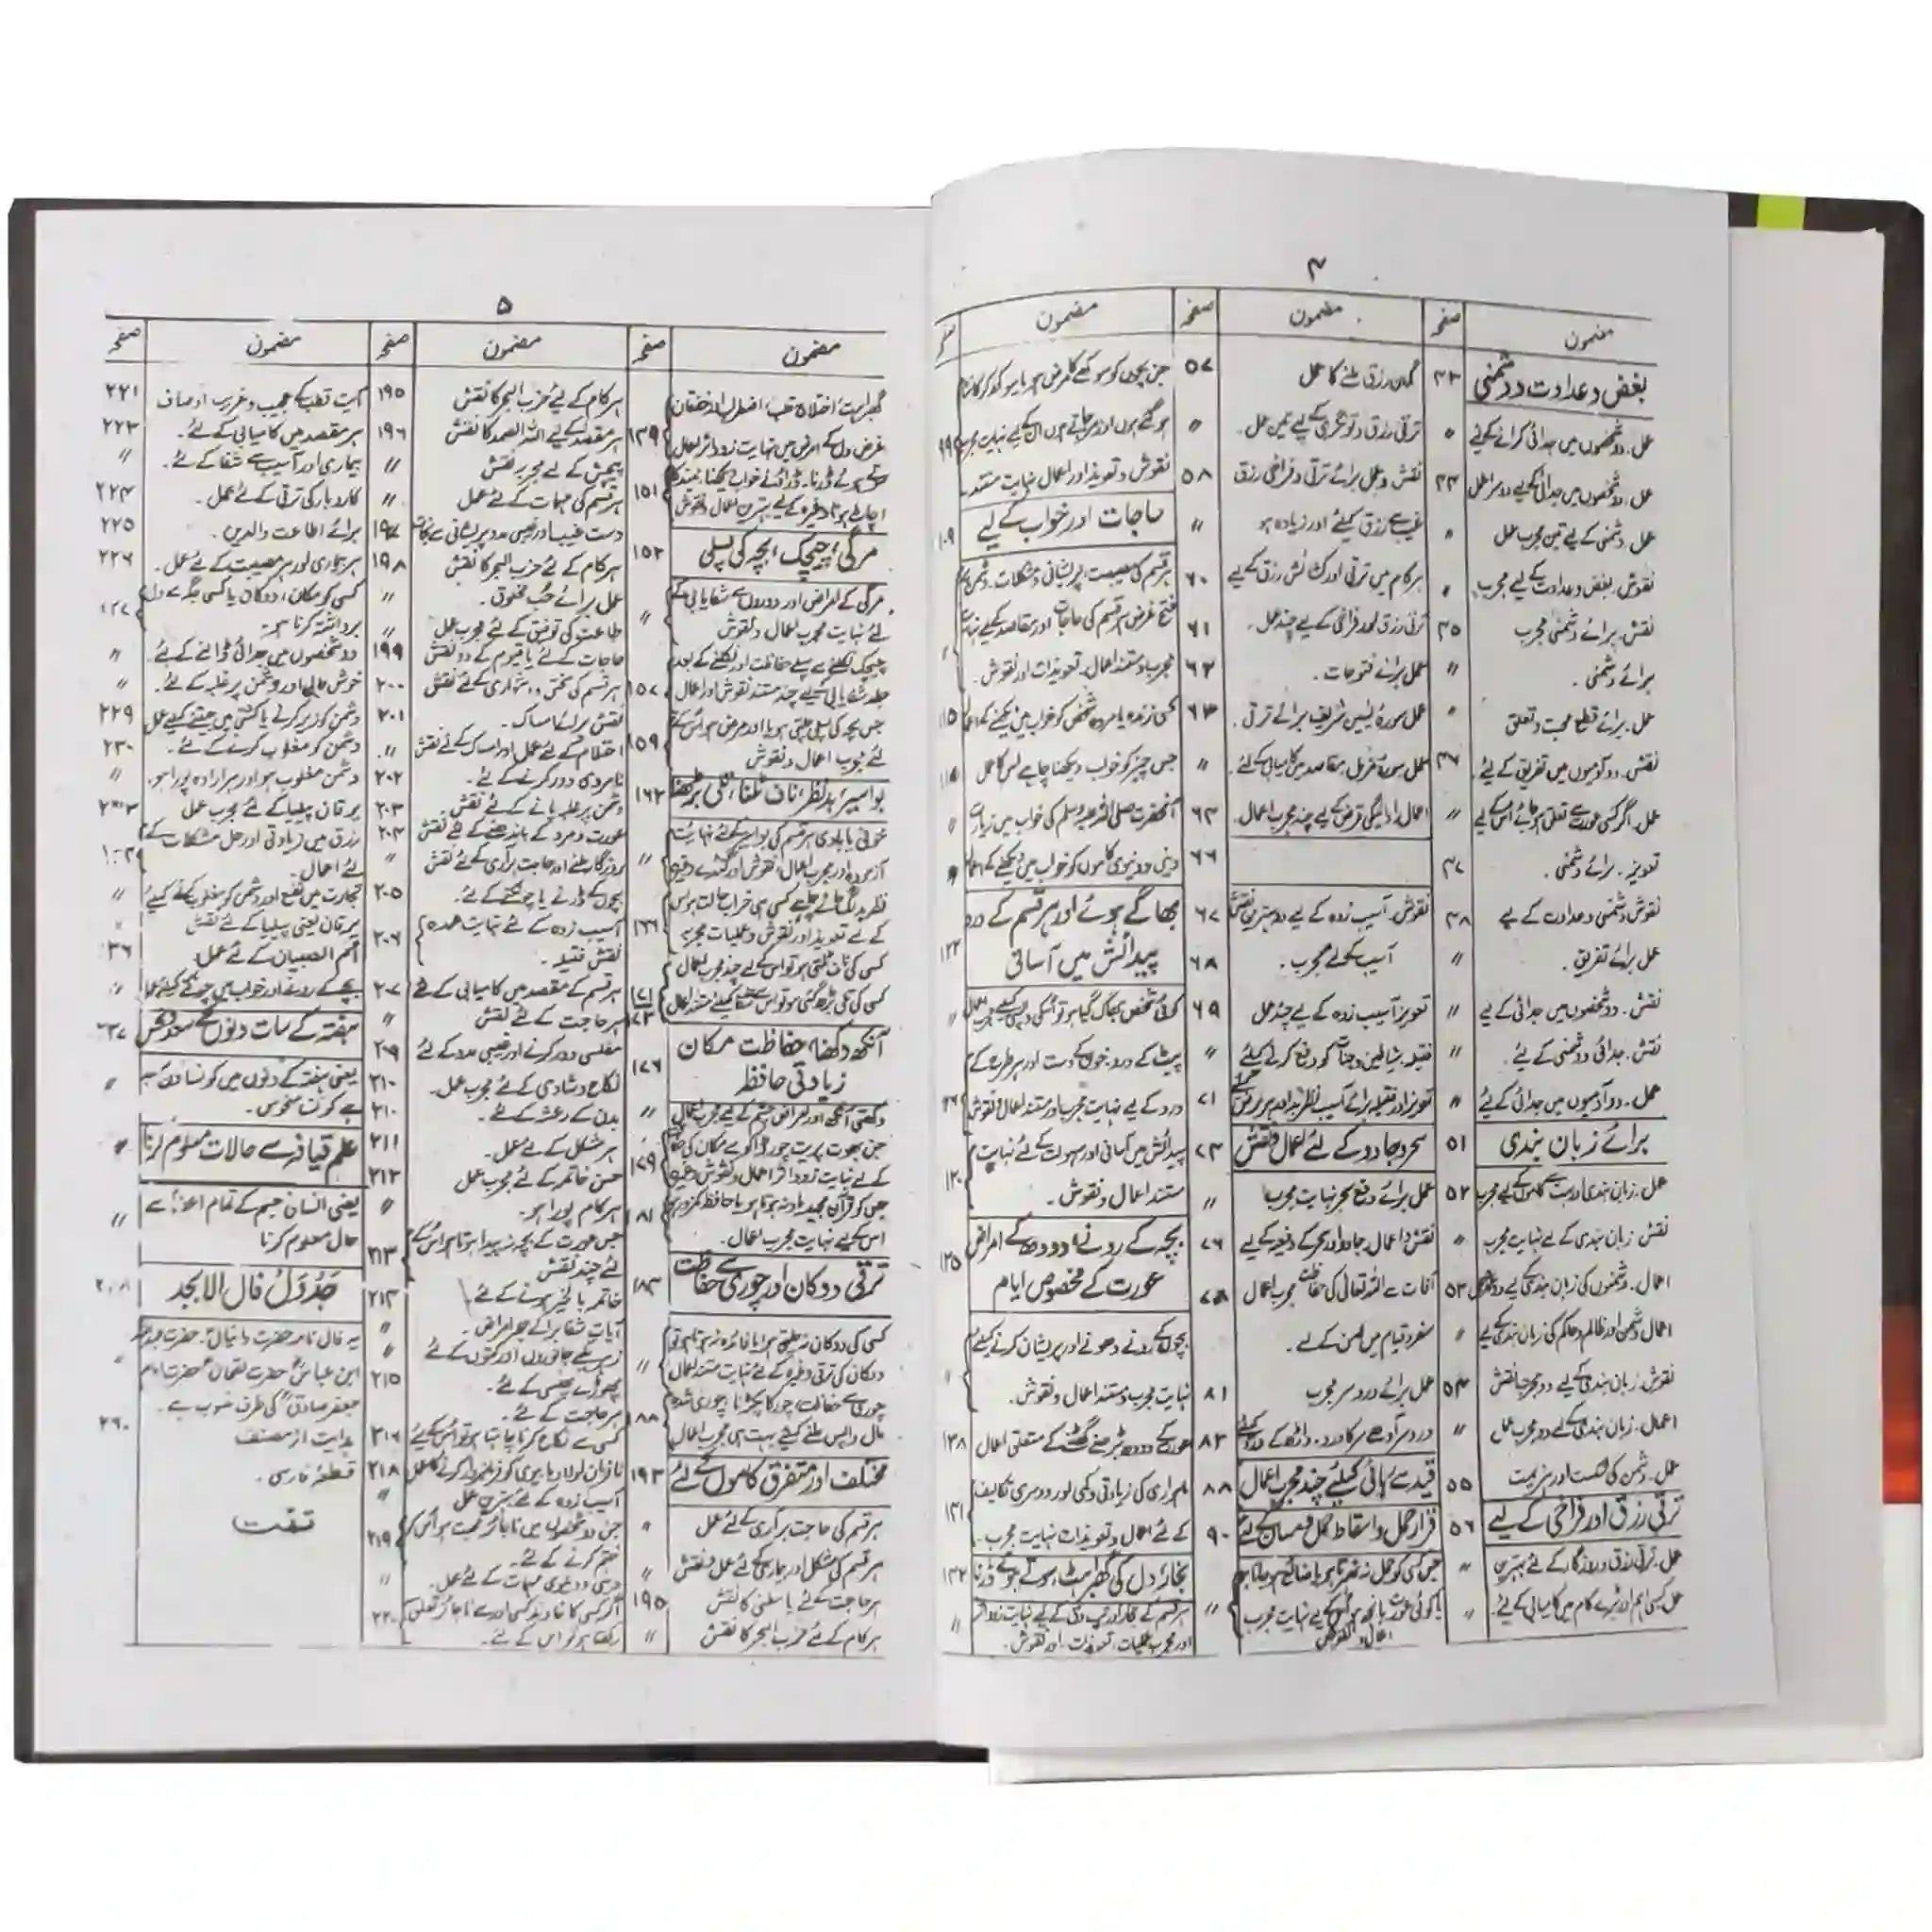 ۴
مضمون
صفحہ
مضمون
صفحہ
مضمون
بغض و عداوت و دشمنی
عمل۔ دو شخصوں میں جدائی کرانے کیلئے
عمل۔ دو شخصوں میں جدائی کیلئے دوسرا عمل
عمل۔ دشمنی کے لیے تین مجرب عمل
نقوش۔ بغض و عداوت کے لیے مجرب
نقش۔ برائے دشمنی مجرب
برائے دشمنی۔
عمل۔ برائے قطع محبت و تعلق
نقش۔ دو آدمیوں میں تفریق کے لیے۔
عمل۔ اگر کسی عورت سے تعلق ہو جائے اس کے لیے
تعویذ۔ برائے دشمنی۔
نقوش دشمنی و عداوت کے لیے
عمل برائے تفریق۔
نقش۔ دو شخصوں میں جدائی کے لیے
نقش۔ جدائی و دشمنی کے لئے۔
عمل۔ دو آدمیوں میں جدائی کے لیے
برائے زبان بندی
نقش زبان بندی کے لیے نہایت مجرب
اعمال دشمن اور ظالم و حاکم کی زبان بندی کیلئے
نقوش۔ زبان بندی کیلئے دو مجرب نقش
اعمال۔ زبان بندی کے لیے دو مجرب عمل
عمل۔ دشمن کی شکست اور ہزیمت
ترقی رزق اور فراخی کے لیے
عمل۔ ترقی رزق و روزگار کے لئے بہترین
عمل کسی اہم اور بڑے کام میں کامیابی کے لیے۔
۴۳
۴۴
۴۵
۴۶
۴۷
۴۸
۵۱
۵۲
۵۳
۵۴
۵۵
۵۶
رزق ملنے کا عمل
ترقی رزق و نوکری کے لیے تین عمل۔
نقش و عمل برائے ترقی و فراخی رزق
غیب سے رزق کیلئے اور زیادہ ہو
ہر کام میں ترقی اور کشائش رزق کے لیے
ترقی رزق اور فراخی کے لیے چند عمل۔
عمل برائے فتوحات۔
عمل سورۂ یٰسین شریف برائے ترقی۔
عمل سورۂ مزمل مقاصد میں کامیابی کیلئے۔
اعمال ادائیگی قرض کیلئے چند مجرب اعمال۔
نقوش۔ آسیب زدہ کے لیے دو بہترین نقش
آسیب کیلئے مجرب۔
تعویذ آسیب زدہ کے لیے چند عمل
فتیلہ۔ شیاطین و جنات کو دفع کرنے کیلئے
سحر و جادو کے لئے اعمال و نقش
عمل برائے دفع سحر نہایت مجرب
نقش و اعمال۔ جادو اور سحر کے دفعیہ کیلئے
آفات سے اللہ تعالیٰ کی حفاظت مجرب اعمال
سفر و قیام میں امن کے لیے۔
عمل برائے درد سر مجرب
درد سر آدھے سر کا درد۔ داڑھ کے درد کیلئے
قید سے رہائی کیلئے چند مجرب اعمال
قرار حمل و اسقاط حمل
یا کوئی عورت بانجھ ہو اس کے لیے نہایت مجرب
اعمال و نقوش
۵۷
۵۸
۶۰
۶۱
۶۲
۶۳
۶۴
۶۶
۶۷
۶۸
۶۹
۷۱
۷۳
۷۶
۷۸
۸۱
۸۳
۸۸
۹۰
جن بچوں کو سوکھے کا مرض ہو یا سوکھ کر کانٹا
ہو گئے ہوں اور مر جاتے ہوں ان کے لیے نہایت مجرب
نقوش و تعویذ اور اعمال نہایت مستند۔
حاجات اور خواب کے لیے
ہر قسم کی مصیبت، پریشانی و مشکلات۔
غرض ہر قسم کی حاجات اور مقاصد کیلئے نہایت
مجرب و مستند اعمال۔ تعویذات اور نقوش۔
کسی زندہ یا مردہ شخص کو خواب میں دیکھنے کے اعمال
جس چیز کو خواب دیکھنا چاہے اس کا عمل
آنحضرت صلی اللہ علیہ وسلم کی خواب میں زیارت
دینی و دنیوی کاموں کو خواب میں دیکھنے کے اعمال
بھاگے ہوئے اور ہر قسم کے درد
پیدائش میں آسانی
کوئی شخص بھاگ گیا ہو تو اسکی واپسی کیلئے مجرب اعمال
پیٹ کے درد، خون کے دست اور ہر طرح کے
درد کے لیے نہایت مجرب اور مستند اعمال و نقوش
پیدائش میں آسانی اور سہولت کے لئے نہایت
مستند اعمال و نقوش۔
بچہ کے رونے، دودھ کے امراض
عورت کے مخصوص ایام
بچوں کے رونے دھونے اور پریشان کرنے کیلئے
نہایت مجرب و مستند اعمال و نقوش۔
عورت کے دودھ بڑھنے گھٹنے کے متعلق اعمال
ماہواری کی زیادتی و کمی اور دوسری تکالیف
کے لئے اعمال و تعویذات نہایت مجرب۔
بخار، دل کی گھبراہٹ، سوتے ہوئے ڈرنا
اور مجرب عملیات، تعویذات، اور نقوش۔
۱۰۹
۱۱۵
۱۲۲
۱۲۵
۱۳۸
۱۴۱
۱۴۲
۵
مضمون
صفحہ
مضمون
صفحہ
مضمون
صفحہ
گھبراہٹ، اختلاج قلب، اضطراب اور خفقان
غرض دل کے امراض میں نہایت زود اثر اعمال
سوتے ہوئے ڈرنا۔ ڈراؤنے خواب دیکھنا، نیند کا
اچاٹ ہونا وغیرہ کے لیے بہترین اعمال و نقوش
مرگی، چیچک، بچہ کی پسلی
مرگی کے امراض اور دوروں سے شفایابی کے
لئے نہایت مجرب اعمال و نقوش
چیچک نکلنے سے پہلے حفاظت اور نکلنے کے بعد
جلد شفایابی کیلئے چند مستند نقوش اور اعمال
جس بچہ کی پسلی چلتی ہو یا اور مرض ہو اس کے
لئے مجرب اعمال و نقوش
بواسیر، بد نظر، ناف ٹلنا، تلی بڑھنا
خونی یا بادی ہر قسم کی بواسیر کیلئے نہایت
آزمودہ اور مجرب اعمال، نقوش اور گنڈے وغیرہ
نظر بد لگ جائے چاہے کسی ہی خراب حالت ہو اس
کے لئے تعویذ اور نقوش و عملیات مجرب
کسی کی ناف ٹلتی ہو تو اس کے لئے چند مجرب اعمال
کسی کی تلی بڑھ گئی ہو تو اس کیلئے مستند اعمال
آنکھ دکھنا، حفاظت مکان
زیادتی حافظہ
دکھتی آنکھ اور امراض چشم کے لیے مجرب اعمال
جن بھوت پریت چور ڈاکو سے مکان کی حفاظت
کے لئے نہایت زود اثر اعمال و نقوش وغیرہ
جس کو قرآن مجید یاد نہ ہوتا ہو یا حافظہ کمزور ہو
اس کے لیے نہایت مجرب اعمال۔
ترقی دوکان اور چوری سے حفاظت
کسی کی دوکان نہ چلتی ہو یا فائدہ نہ ہوتا ہو تو
دوکان کی ترقی وغیرہ کے لئے نہایت مستند اعمال
چوری سے حفاظت، چور کا پکڑنا، چوری شدہ
مال واپس ملنے کیلئے بہت ہی مجرب اعمال
مختلف اور متفرق کاموں کے لئے
ہر قسم کی حاجت برآری کے لئے عمل
ہر قسم کی مشکل اور بیماری کیلئے عمل و نقش
ہر حاجت کے لئے یا سلمیٰ کا نقش
ہر کام کے لئے حزب البحر کا نقش
۱۴۹
۱۵۱
۱۵۲
۱۵۷
۱۵۹
۱۶۲
۱۶۶
۱۷۱
۱۷۳
۱۷۶
۱۷۹
۱۸۱
۱۸۴
۱۸۸
۱۹۳
۱۹۵
ہر کام کے لئے حزب البحر کا نقش
ہر مقصد کے لیے اللہ الصمد کا نقش
پیچش کے لئے مجرب نقش
ہر قسم کی مہمات کے لئے عمل
دست غیب اور غیبی مدد پریشانی سے نجات
ہر کام کے لئے حزب البحر کا نقش
عمل برائے حُب مخلوق۔
طاعت کی توفیق کے لئے مجرب عمل
حاجات کے لئے یا قیوم کے دو نقش
نقش برائے امساک۔
احتلام کے لئے عمل اور امساک کے لئے نقش
نامردی دور کرنے کے لئے۔
دشمن پر غلبہ پانے کے لئے نقش۔
عورت و مرد کے باندھنے کے لئے نقش
روزگار ملنے اور حاجت برآری کے لئے نقش
بچوں کے ڈرنے یا چونکنے کے لئے۔
آسیب زدہ کے لئے نہایت عمدہ
نقش فتیلہ۔
ہر قسم کے مقصد میں کامیابی کے لئے
ہر حاجت کے لئے نقش
مفلسی دور کرنے اور غیبی مدد کے لئے
نکاح و شادی کے لئے مجرب عمل۔
بدن کے رعشہ کے لئے۔
ہر مشکل کے لئے عمل۔
حسن خاتمہ کے لئے مجرب عمل
ہر کام پورا ہو۔
جس عورت کے بچہ نہ پیدا ہوتا ہو اس کے
لئے چند نقش
خاتمہ بالخیر ہونے کے لئے
آیات شفا برائے جملہ امراض۔
زہریلے جانوروں اور کتوں کے لئے
پھوڑے پھنسی کے لئے۔
ہر حاجت کے لئے۔
کسی سے نکاح کرنا چاہتا ہو تو اس کے لئے
نافرمان اولاد یا بیوی کو فرمانبردار کرنے کا عمل
آسیب زدہ کے لئے بہترین عمل
جن دو شخصوں میں ناجائز محبت ہو اس کو
ختم کرنے کے لئے۔
دینی و دنیوی مہمات کے لئے عمل۔
اگر کسی کا خاوند کسی اور سے ناجائز تعلق
رکھتا ہو تو اس کے لئے۔
۱۹۵
۱۹۶
۱۹۷
۱۹۸
۱۹۹
۲۰۰
۲۰۱
۲۰۲
۲۰۳
۲۰۴
۲۰۵
۲۰۶
۲۰۷
۲۰۹
۲۱۰
۲۱۰
۲۱۱
۲۱۲
۲۱۳
۲۱۴
۲۱۵
۲۱۶
۲۱۸
۲۱۹
۲۲۰
آیت قطب کے عجیب و غریب اوصاف
ہر مقصد میں کامیابی کے لئے۔
بیماری اور آسیب سے شفا کے لئے۔
کاروبار کی ترقی کے لئے عمل۔
برائے اطاعت والدین۔
ہر بیماری اور ہر مصیبت کے لئے عمل۔
کسی کو مکان، دوکان یا کسی جگہ سے دل
برداشتہ کرنا ہو۔
دو شخصوں میں جدائی ڈالنے کے لئے۔
خوش حالی اور دشمن پر غلبہ کے لئے۔
دشمن کو زیر کرنے یا کشتی میں جیتنے کیلئے عمل
دشمن کو مغلوب کرنے کے لئے۔
دشمن مغلوب ہو اور ہر ارادہ پورا ہو۔
یرقان پیلیا کے لئے مجرب عمل
رزق میں زیادتی اور حل مشکلات کے
لئے اعمال۔
تجارت میں نفع اور دشمن کو مغلوب کرنے کیلئے
یرقان یعنی پیلیا کے لئے نقش
ام الصبیان کے لئے عمل۔
بچے کے رونے اور خواب میں چونکنے کیلئے عمل
ہفتہ کے سات دنوں کے سعد و نحس
یعنی ہفتہ کے دنوں میں کونسا دن سعد
ہے کون نحوس۔
علم قیافہ سے حالات معلوم کرنا
یعنی انسان جسم کے تمام اعضاء سے
حال معلوم کرنا
جَدْوَلُ فال الابجد
یہ فال نامہ حضرت دانیالؑ۔
ابن عباسؓ حضرت لقمانؑ حضرت امام
جعفر صادقؒ کی طرف منسوب ہے۔
ہدایت از مصنف
قطعۂ فارسی۔
تمت
۲۲۱
۲۲۳
۲۲۴
۲۲۵
۲۲۶
۲۲۹
۲۳۰
۲۶۰